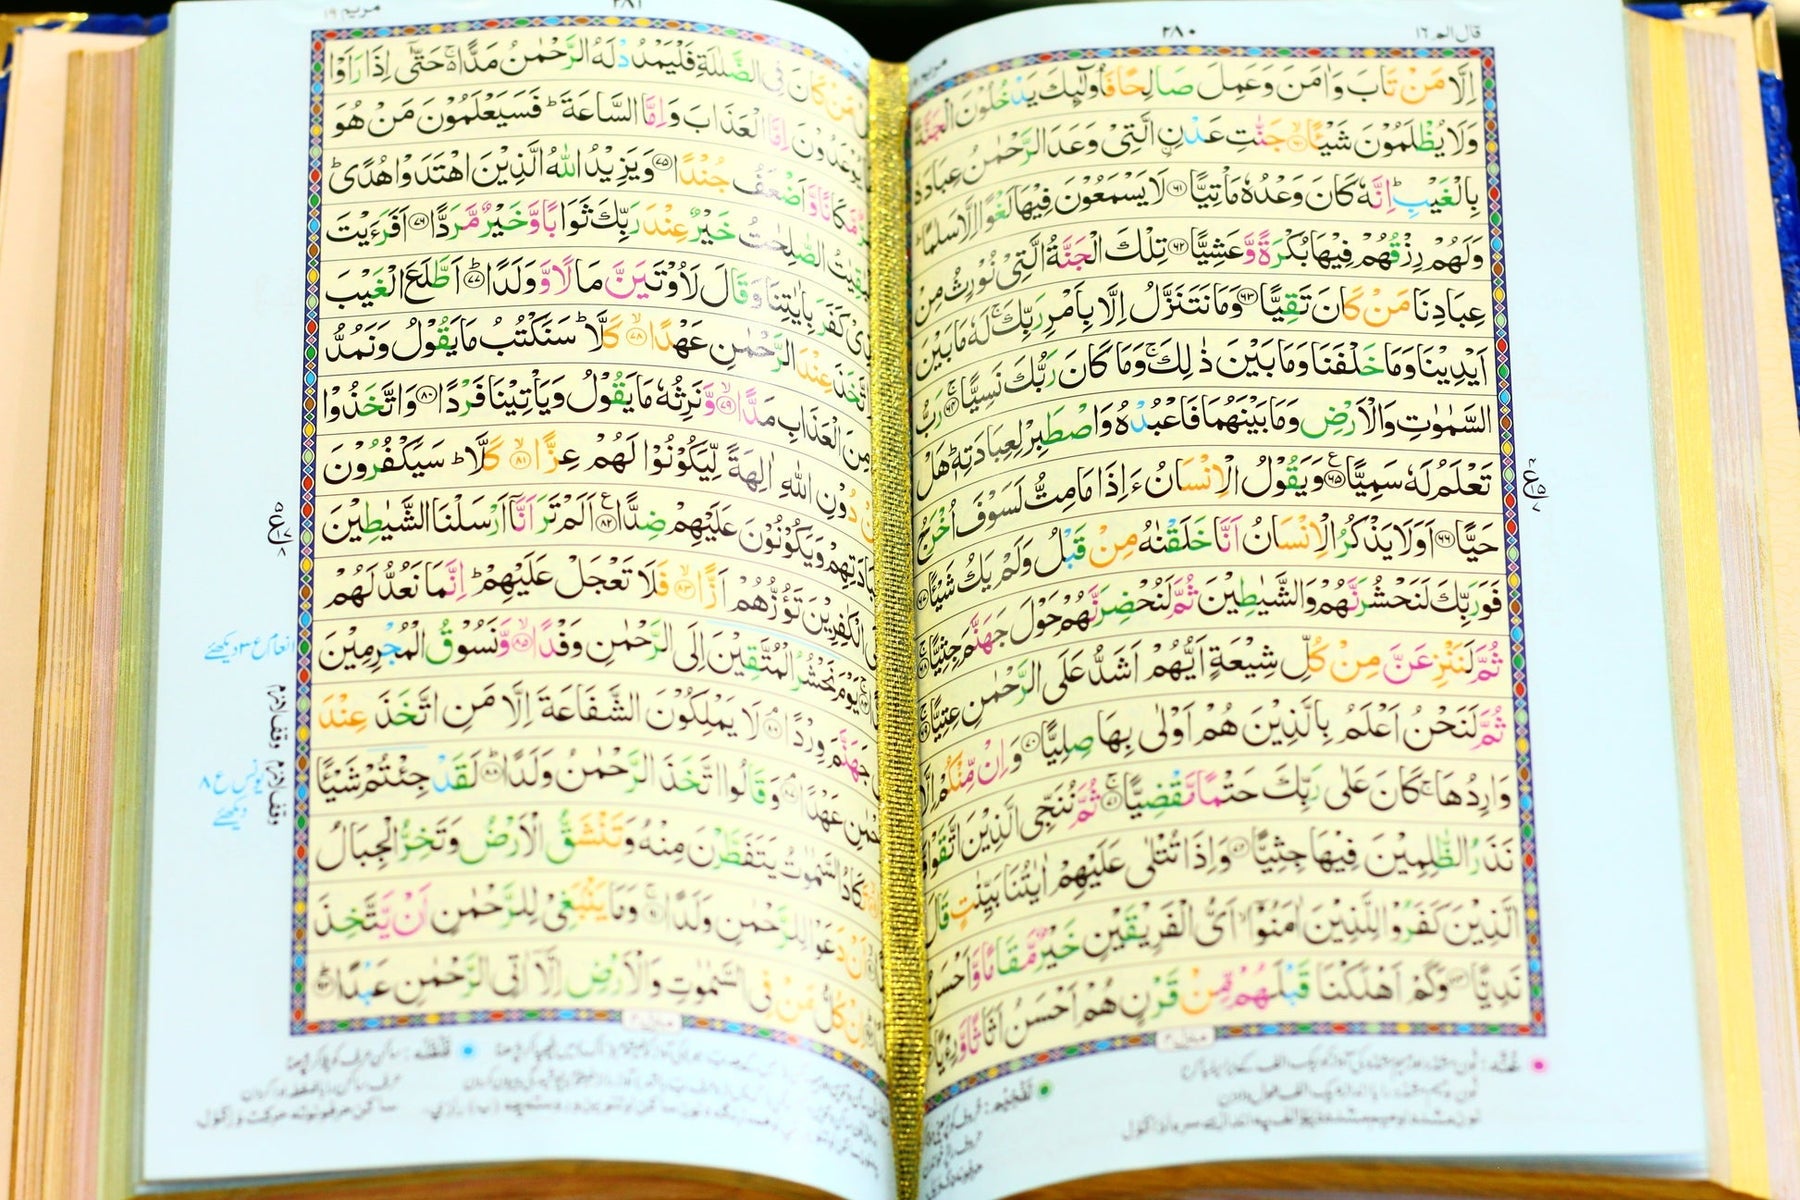 قال الم ١٦
٢٨٠
مريم ١٩
اِلَّا مَنْ تَابَ وَاٰمَنَ وَعَمِلَ صَالِحًا فَاُولٰٓئِكَ يَدْخُلُوْنَ الْجَنَّةَ
وَلَا يُظْلَمُوْنَ شَيْـًٔا ۙ۶۰ جَنّٰتِ عَدْنِ ِ۟الَّتِىْ وَعَدَ الرَّحْمٰنُ عِبَادَهٗ
بِالْغَيْبِ ؕ اِنَّهٗ كَانَ وَعْدُهٗ مَاْتِيًّا ۶۱ لَا يَسْمَعُوْنَ فِيْهَا لَغْوًا اِلَّا سَلٰمًا ؕ
وَلَهُمْ رِزْقُهُمْ فِيْهَا بُكْرَةً وَّعَشِيًّا ۶۲ تِلْكَ الْجَنَّةُ الَّتِىْ نُوْرِثُ مِنْ
عِبَادِنَا مَنْ كَانَ تَقِيًّا ۶۳ وَمَا نَتَنَزَّلُ اِلَّا بِاَمْرِ رَبِّكَ ۚ لَهٗ مَا بَيْنَ
اَيْدِيْنَا وَمَا خَلْفَنَا وَمَا بَيْنَ ذٰلِكَ ۚ وَمَا كَانَ رَبُّكَ نَسِيًّا ۚ۶۴ رَبُّ
السَّمٰوٰتِ وَالْاَرْضِ وَمَا بَيْنَهُمَا فَاعْبُدْهُ وَاصْطَبِرْ لِعِبَادَتِهٖ ؕ هَلْ
تَعْلَمُ لَهٗ سَمِيًّا ۶۵ وَيَقُوْلُ الْاِنْسَانُ ءَاِذَا مَا مِتُّ لَسَوْفَ اُخْرَجُ
حَيًّا ۶۶ اَوَلَا يَذْكُرُ الْاِنْسَانُ اَنَّا خَلَقْنٰهُ مِنْ قَبْلُ وَلَمْ يَكُ شَيْـًٔا ۶۷
فَوَرَبِّكَ لَنَحْشُرَنَّهُمْ وَالشَّيٰطِيْنَ ثُمَّ لَنُحْضِرَنَّهُمْ حَوْلَ جَهَنَّمَ جِثِيًّا ۚ۶۸
ثُمَّ لَنَنْزِعَنَّ مِنْ كُلِّ شِيْعَةٍ اَيُّهُمْ اَشَدُّ عَلَى الرَّحْمٰنِ عِتِيًّا ۚ۶۹
ثُمَّ لَنَحْنُ اَعْلَمُ بِالَّذِيْنَ هُمْ اَوْلٰى بِهَا صِلِيًّا ۷۰ وَاِنْ مِّنْكُمْ اِلَّا
وَارِدُهَا ۚ كَانَ عَلٰى رَبِّكَ حَتْمًا مَّقْضِيًّا ۚ۷۱ ثُمَّ نُنَجِّى الَّذِيْنَ اتَّقَوْا
نَذَرُ الظّٰلِمِيْنَ فِيْهَا جِثِيًّا ۷۲ وَاِذَا تُتْلٰى عَلَيْهِمْ اٰيٰتُنَا بَيِّنٰتٍ قَالَ
الَّذِيْنَ كَفَرُوْا لِلَّذِيْنَ اٰمَنُوْۤا ۙ اَىُّ الْفَرِيْقَيْنِ خَيْرٌ مَّقَامًا وَّاَحْسَنُ
نَدِيًّا ۷۳ وَكَمْ اَهْلَكْنَا قَبْلَهُمْ مِّنْ قَرْنٍ هُمْ اَحْسَنُ اَثَاثًا وَّرِءْيًا
منزل ٤
غُنَّه :
تَفْخِيْم :
٢٨١
مريم ١٩
مَنْ كَانَ فِى الضَّلٰلَةِ فَلْيَمْدُدْ لَهُ الرَّحْمٰنُ مَدًّا ۚ حَتّٰۤى اِذَا رَاَوْا
يُوْعَدُوْنَ اِمَّا الْعَذَابَ وَاِمَّا السَّاعَةَ ؕ فَسَيَعْلَمُوْنَ مَنْ هُوَ
مَّكَانًا وَّاَضْعَفُ جُنْدًا ۷۵ وَيَزِيْدُ اللّٰهُ الَّذِيْنَ اهْتَدَوْا هُدًى ؕ
الصّٰلِحٰتُ خَيْرٌ عِنْدَ رَبِّكَ ثَوَابًا وَّخَيْرٌ مَّرَدًّا ۷۶ اَفَرَءَيْتَ
كَفَرَ بِاٰيٰتِنَا وَقَالَ لَاُوْتَيَنَّ مَالًا وَّوَلَدًا ؕ۷۷ اَطَّلَعَ الْغَيْبَ
اتَّخَذَ عِنْدَ الرَّحْمٰنِ عَهْدًا ۙ۷۸ كَلَّا ؕ سَنَكْتُبُ مَا يَقُوْلُ وَنَمُدُّ
مِنَ الْعَذَابِ مَدًّا ۙ۷۹ وَّنَرِثُهٗ مَا يَقُوْلُ وَيَاْتِيْنَا فَرْدًا ۸۰ وَاتَّخَذُوْا
دُوْنِ اللّٰهِ اٰلِهَةً لِّيَكُوْنُوْا لَهُمْ عِزًّا ۙ۸۱ كَلَّا ؕ سَيَكْفُرُوْنَ
وَيَكُوْنُوْنَ عَلَيْهِمْ ضِدًّا ۸۲ اَلَمْ تَرَ اَنَّاۤ اَرْسَلْنَا الشَّيٰطِيْنَ
الْكٰفِرِيْنَ تَؤُزُّهُمْ اَزًّا ۙ۸۳ فَلَا تَعْجَلْ عَلَيْهِمْ ؕ اِنَّمَا نَعُدُّ لَهُمْ
يَوْمَ نَحْشُرُ الْمُتَّقِيْنَ اِلَى الرَّحْمٰنِ وَفْدًا ۙ۸۵ وَّنَسُوْقُ الْمُجْرِمِيْنَ
جَهَنَّمَ وِرْدًا ۘ۸۶ لَا يَمْلِكُوْنَ الشَّفَاعَةَ اِلَّا مَنِ اتَّخَذَ عِنْدَ
عَهْدًا ۘ۸۷ وَقَالُوا اتَّخَذَ الرَّحْمٰنُ وَلَدًا ؕ۸۸ لَقَدْ جِئْتُمْ شَيْـًٔا
السَّمٰوٰتُ يَتَفَطَّرْنَ مِنْهُ وَتَنْشَقُّ الْاَرْضُ وَتَخِرُّ الْجِبَالُ
اَنْ دَعَوْا لِلرَّحْمٰنِ وَلَدًا ۚ۹۱ وَمَا يَنْۢبَغِىْ لِلرَّحْمٰنِ اَنْ يَّتَّخِذَ
اِنْ كُلُّ مَنْ فِى السَّمٰوٰتِ وَالْاَرْضِ اِلَّاۤ اٰتِى الرَّحْمٰنِ عَبْدًا ؕ۹۳
انعام ع ٣ دیکھئے
وقف لازم
وقف لازم
یونس ع ٨
دیکھئے
قَلْقَلَه :